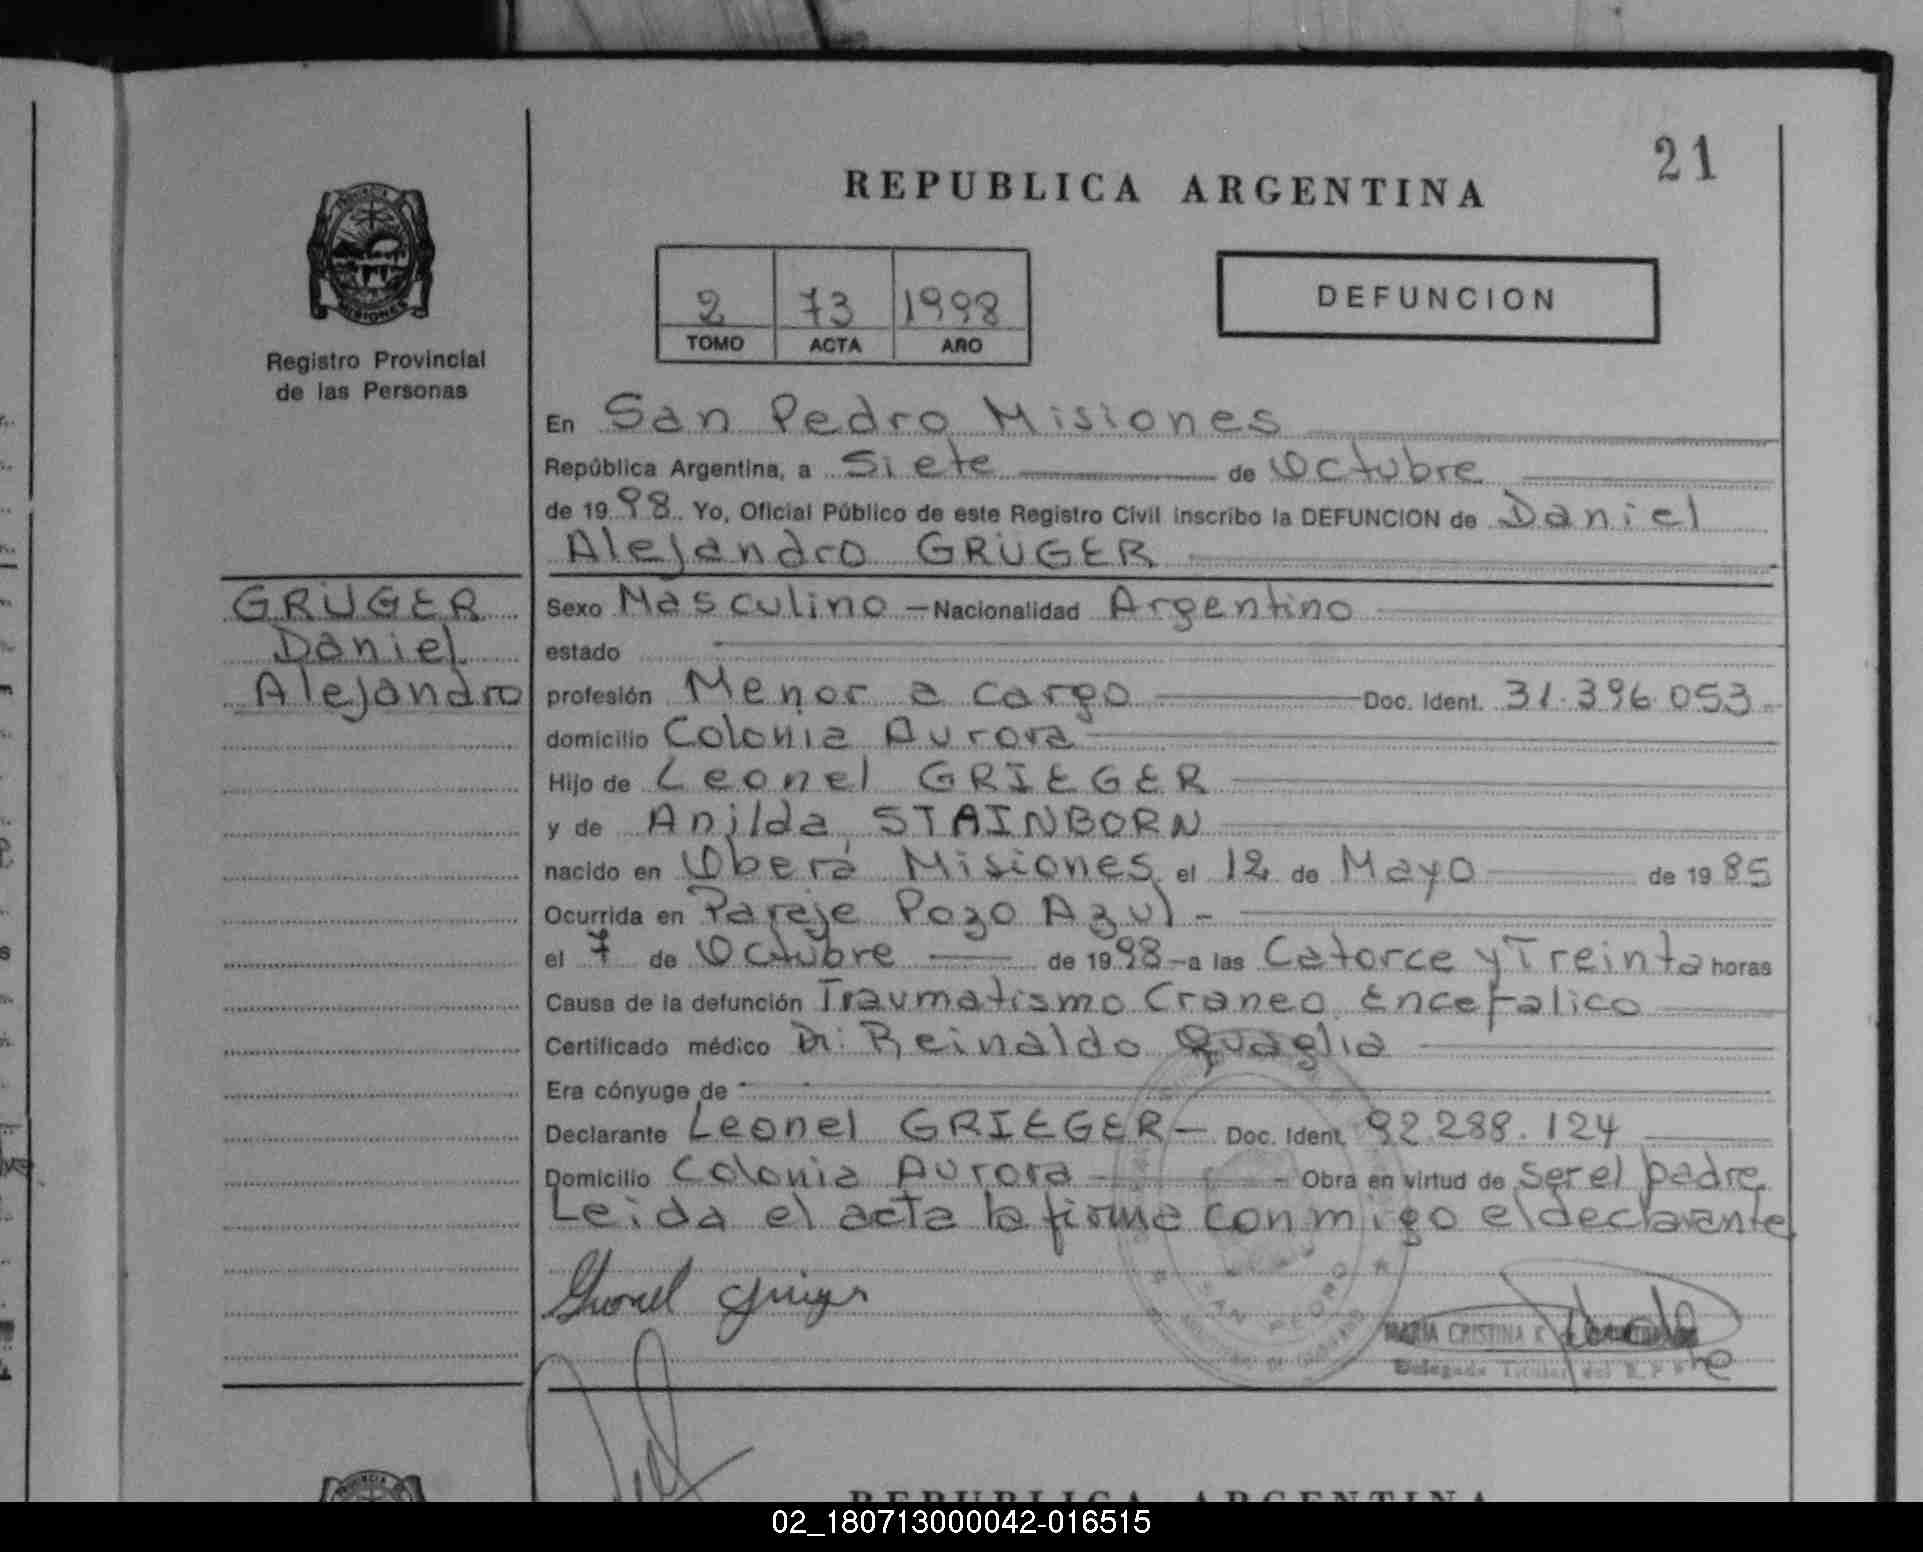 21
REPUBLICA ARGENTINA
PROVINCIA
MISIONES
Registro Provincial
de las Personas
2 73 1998
TOMO ACTA AÑO
DEFUNCION
En San Pedro Misiones
República Argentina, a Siete de Octubre
de 1998 Yo, Oficial Público de este Registro Civil inscribo la DEFUNCION de Daniel
Alejandro GRÜGER
GRÜGER
Daniel
Alejandro
Sexo Masculino - Nacionalidad Argentino
estado
profesión Menor a cargo Doc. Ident. 31.396.053.
domicilio Colonia Aurora
Hijo de Leonel GRIEGER
y de Anilda STAINBORN
nacido en Oberá Misiones el 12 de Mayo de 1985
Ocurrida en Paraje Pozo Azul -
el 7 de Octubre de 1998 - a las Catorce y Treinta horas
Causa de la defunción Traumatismo Craneo Encefalico
Certificado médico Dr: Reinaldo Quaglia
Era cónyuge de
Declarante Leonel GRIEGER - Doc. Ident. 92.288.124
Domicilio Colonia Aurora - Obra en virtud de ser el padre
Leida el acta la firma conmigo el declarante
SAN PEDRO
MARIA CRISTINA K. de
Delegada Titular del R.P.P.
REPUBLICA ARGENTINA
02_180713000042-016515